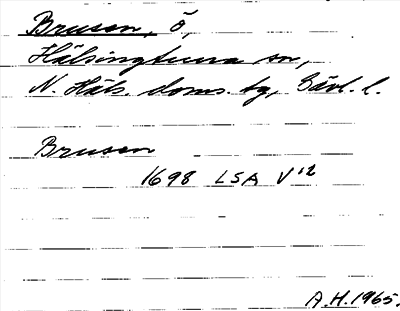 Brusen, Ö,
Hälsingtuna sn,
N. Häls. doms. tg, Gävl. l.
Brusen
1698 LSA V¹²
A.H. 1965.